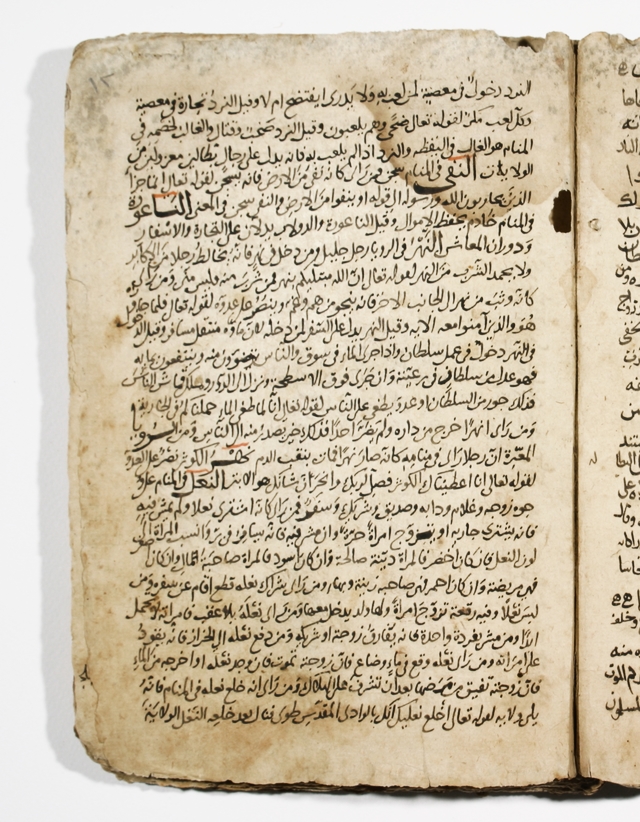 النرد دخول في معصية لمن لعب به ولا يدرى ايفتضح ام لا وقيل النرد تجارة في معصية
وكل لعب مكر لقوله تعالى ضحى وهم يلعبون وقيل النرد صخب وقتال والغالب لخصمه في
المنام هو الغالب في اليقظه والنرد اذا لم يلعب به فانه يدل على رجال بطالين معزولين من
الولايات النفي في المنام سجن فمن راى كانه نفي من الارض فانه يسجن لقوله تعالى انما جزا
الذين يحاربون الله ورسوله الى قوله او ينفوا من الارض والنفي سجن في المعنى الناعورة
في المنام خادم يحفظ الاموال وقيل الناعورة والدولاب يدلان على التجارة والاسفار
ودوران المعاش النهر في الرويا رجل جليل ومن دخل في نهر فانه يخالط رجلا من الاكابر
ولا يحمد الشرب من النهر لقوله تعالى ان الله مبتليكم بنهر فمن شرب منه فليس مني ومن راى
كانه وثب من نهر الى الجانب الاخر فانه ينجو من هم وغم وينصر على عدوه لقوله تعالى فلما جاوزه
هو والذين آمنوا معه الايه وقيل النهر يدل على السفر لمن دخله لان ماؤه منتقل مسافر وقيل الدخول
في النهر دخول في عمل سلطان واذا جرى الماء في سوق والناس يتوضون منه وينتفعون بمايه
فهو عدل من سلطان في رعيته وان جرى فوق الاسطحة ونزل الى الدور وهلك قماش الناس
فذلك جور من السلطان او عدو يطغو على الناس لقوله تعالى انا لما طغى الماء حملناكم في الجارية
ومن راى نهرا خرج من داره ولم يضر احدا فذلك خير يصدر منه الى الناس ومن
المعبرة ان رجلا راى في منامه كانه صار نهرا فمات بنفث الدم نهر الكوثر نصر على العدو
لقوله تعالى انا اعطيناك الكوثر فصل لربك وانحر ان شانئك هو الابتر النعل في المنام على
جوه زوجه وغلام ودابه وصديق وشريك وسفر فمن راى كانه اشترى نعلا ولم يمش فيه
فانه يشترى جاريه او يتزوج امراة حرة وان مشى فيه فانه يسافر في بر وانسب المراة الى
لون النعل فان كان اخضر فالمراة دينة صالحة وان كان اسود فالمراة صاحبة مال وان كان
فهى مريضة وان كان احمر فهى صاحبه زينة وبها ومن راى شراك نعله قطع اقام عن سفره ومن
لبس نعلا وفيه رقعة تزوج امراة ولها ولد يدخل معها ومن راى نعله بلا عقب فامراته لا تحمل
ابدا ومن مشى بفردة واحدة فانه يفارق زوجته او شريكه ومن دفع نعله الى الخراز فانه يقود
على امراته ومن راى نعله وقع في ماء وضاع فان زوجته تموت فان وجد نعله او اخرجه من الماء
فان زوجته تفيق من مرضها بعد ان تشرف على الهلاك ومن راى انه خلع نعله في المنام فانه
يلى ولاية لقوله تعالى اخلع نعليك انك بالوادى المقدس طوى فنال بعد خلعه النعل الولاية